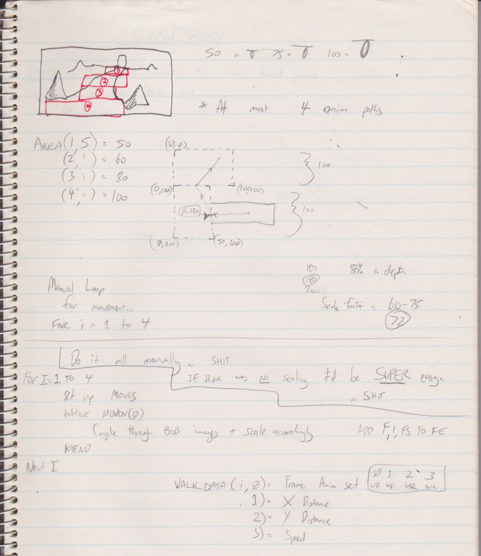 50 = T 75 = T 100 = T
1
2
3
4
* At most 4 anim paths
AREA(1,5) = 50
(2,") = 60
(3 = ) = 80
(4," ) = 100
(0,0)
100
(0,100)
(100,100)
100
(0,200)
(50,200)
100 80% in depth
200
Scale factor = 60-75
72
Manual Loop
for movement...
For i = 1 to 4
Do it all manually... SHIT
If there was no scaling it'd be SUPER easy.
... SHIT
For I=1 to 4
Set up MOVES
WHILE MOVON(0)
Cycle through BOB images + scale accordingly
WEND
Next I
ADD F,1,FS TO FE
WALK.DATA(i,0) = Frame Anim set
0 1 2 3
1) = X Distance
2) = Y Distance
3) = Speed